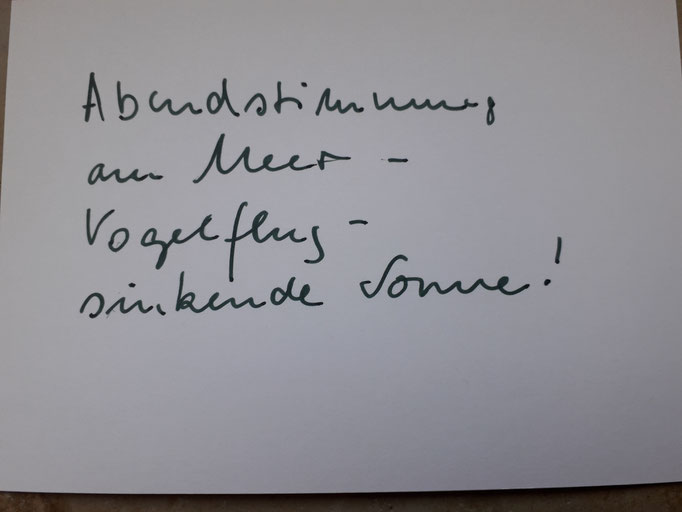 Abendstimmung
am Meer -
Vogelflug -
sinkende Sonne!